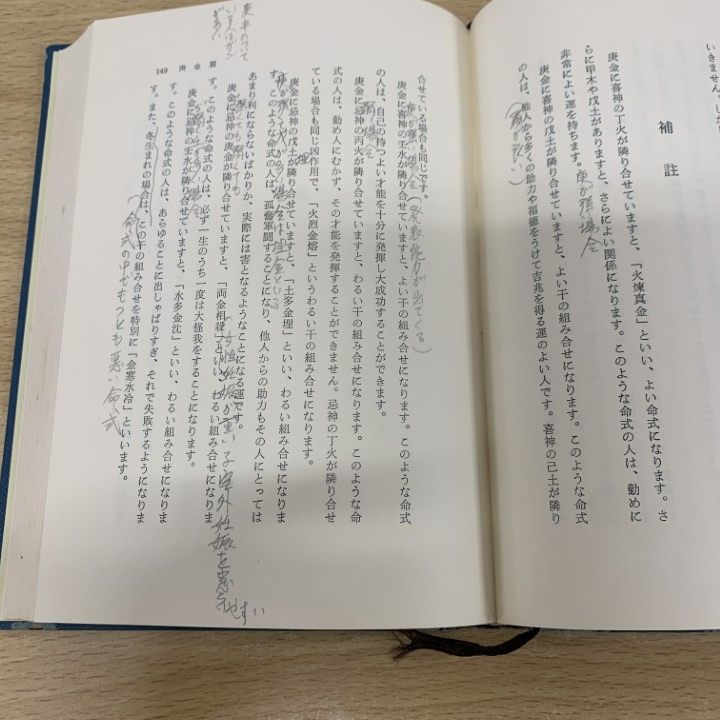 いきません。
補註
庚金に喜神の丁火が隣り合せていますと、「火煉真金」といい、よい命式になります。さ
らに甲木や戊土がありますと、さらによい関係になります。このような命式の人は、勤めに
非常によい運を持ちます。
庚金に喜神の戊土が隣り合せていますと、よい干の組み合せになります。このような命式
の人は、他人から多くの助力や福徳をうけて吉兆を得る運のよい人です。喜神の己土が隣り
合せている場合も同じです。
庚金に喜神の壬水が隣り合せていますと、よい干の組み合せになります。このような命式
の人は、自己の持つよい才能を十分に発揮し大成功することができます。
庚金に忌神の丙火が隣り合せていますと、わるい干の組み合せになります。このような命
式の人は、勤め人にむかず、その才能を発揮することができません。忌神の丁火が隣り合せ
ている場合も同じ凶作用で、「火烈金熔」というわるい干の組み合せになります。
庚金に忌神の戊土が隣り合せていますと、「土多金埋」といい、わるい組み合せになりま
す。このような命式の人は、孤奮軍闘することになり、他人からの助力もその人にとっては
あまり利にならないばかりか、実際には害となるようなことになる運です。
庚金に忌神の庚金が隣り合せていますと、「両金相殺」といい、わるい組み合せになりま
す。このような命式の人は、必ず一生のうち一度は大怪我をすることになります。
庚金に忌神の壬水が隣り合せていますと、「水多金沈」といい、わるい組み合せになりま
す。このような命式の人は、あらゆることに出しゃばりすぎ、それで失敗するようになりま
す。また、冬生まれの場合は、この干の組み合せを特別に「金寒水冷」といいます。
149 庚金篇
庚が強い場合
(発表能力が出てくる)
(命式の中でもっとも悪い命式